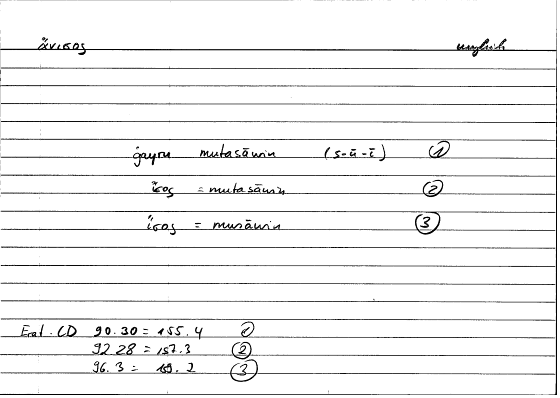 ἄνισος ungleich
ġayru mutasāwin (s-ū-ī) ①
ἴσος = mutasāwin ②
ἴσος = musāwin ③
Erat. CD 90.30 = 155.4 ①
92 28 = 157.3 ②
96. 3 = 159. 2 ③